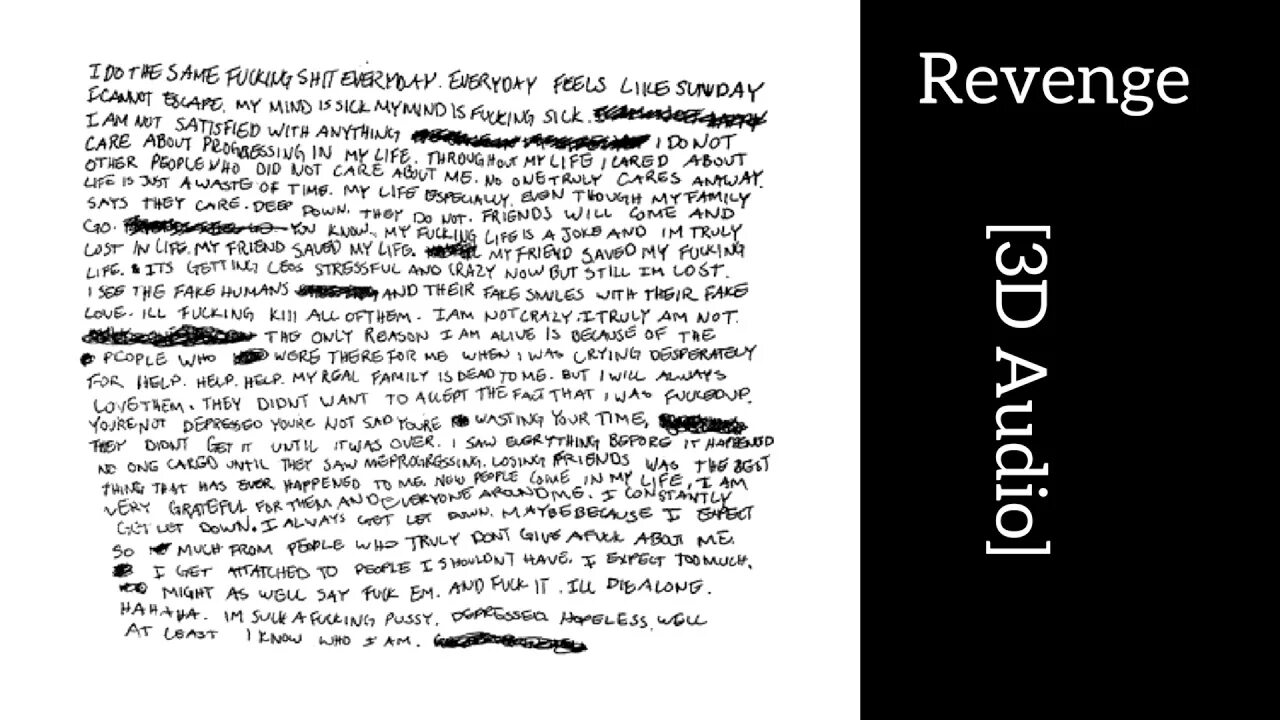 I DO THE SAME FUCKING SHIT EVERYDAY. EVERYDAY FEELS LIKE SUNDAY
I CANNOT ESCAPE. MY MIND IS SICK MY MIND IS FUCKING SICK.
I AM NOT SATISFIED WITH ANYTHING I DO NOT
CARE ABOUT PROGRESSING IN MY LIFE. THROUGHOUT MY LIFE I CARED ABOUT
OTHER PEOPLE WHO DID NOT CARE ABOUT ME. NO ONE TRULY CARES ANYWAY.
LIFE IS JUST A WASTE OF TIME. MY LIFE ESPECIALLY. EVEN THOUGH MY FAMILY
SAYS THEY CARE. DEEP DOWN. THEY DO NOT. FRIENDS WILL COME AND
GO. YOU KNOW. MY FUCKING LIFE IS A JOKE AND IM TRULY
LOST IN LIFE. MY FRIEND SAVED MY LIFE. MY FRIEND SAVED MY FUCKING
LIFE. ITS GETTING LESS STRESSFUL AND CRAZY NOW BUT STILL IM LOST.
I SEE THE FAKE HUMANS AND THEIR FAKE SMILES WITH THEIR FAKE
LOVE. ILL FUCKING KILL ALL OF THEM. I AM NOT CRAZY. I TRULY AM NOT.
THE ONLY REASON I AM ALIVE IS BECAUSE OF THE
PEOPLE WHO WERE THERE FOR ME WHEN I WAS CRYING DESPERATELY
FOR HELP. HELP. HELP. MY REAL FAMILY IS DEAD TO ME. BUT I WILL ALWAYS
LOVE THEM. THEY DIDNT WANT TO ACCEPT THE FACT THAT I WAS FUCKED UP.
YOURE NOT DEPRESSED YOURE NOT SAD YOURE WASTING YOUR TIME,
THEY DIDNT GET IT UNTIL IT WAS OVER. I SAW EVERYTHING BEFORE IT HAPPENED
NO ONE CARED UNTIL THEY SAW ME PROGRESSING. LOSING FRIENDS WAS THE BEST
THING THAT HAS EVER HAPPENED TO ME. NOW PEOPLE COME IN MY LIFE, I AM
VERY GRATEFUL FOR THEM AND EVERYONE AROUND ME. I CONSTANTLY
GET LET DOWN. I ALWAYS GET LET DOWN. MAYBE BECAUSE I EXPECT
SO MUCH FROM PEOPLE WHO TRULY DONT GIVE A FUCK ABOUT ME.
I GET ATTATCHED TO PEOPLE I SHOULDN'T HAVE. I EXPECT TOO MUCH.
MIGHT AS WELL SAY FUCK EM. AND FUCK IT. ILL DIE ALONE.
HAHAHA. IM SUCH A FUCKING PUSSY. DEPRESSED HOPELESS. WELL
AT LEAST I KNOW WHO I AM.
Revenge
[3D Audio]